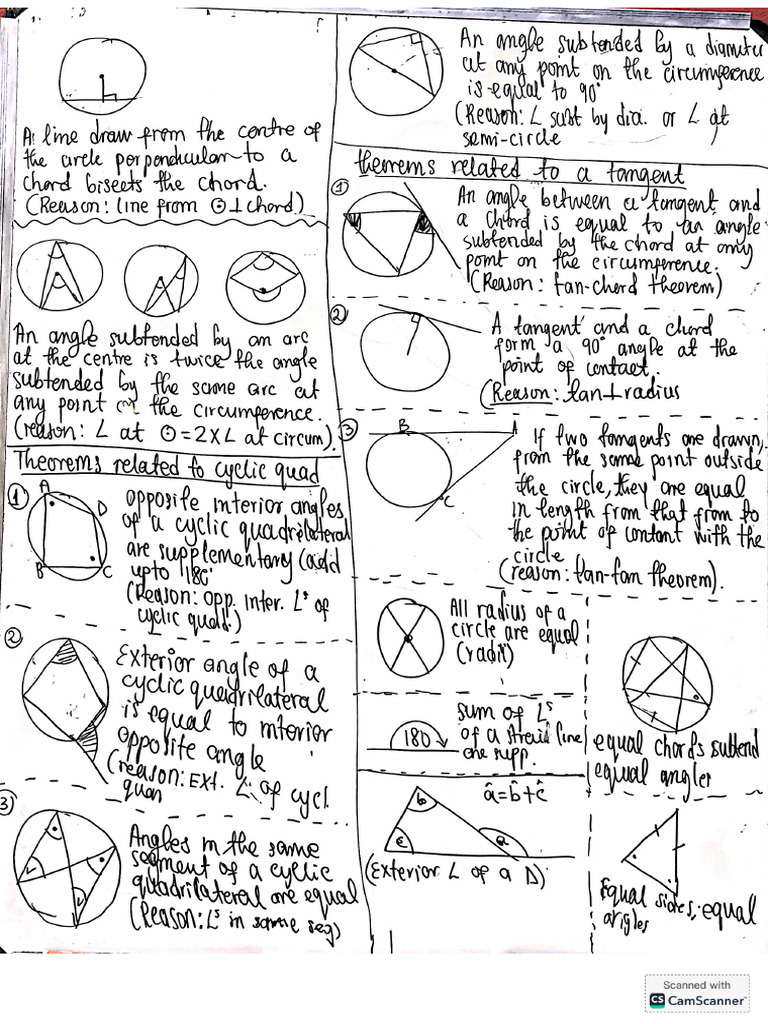 A line draw from the centre of
the circle perpendicular to a
chord bisects the chord.
(Reason: line from ⊙⊥chord)
An angle subtended by an arc
at the centre is twice the angle
subtended by the same arc at
any point on the circumference.
(reason: ∠ at ⊙=2×∠ at circum).
Theorems related to cyclic quad
①
A
D
B
C
opposite interior angles
of a cyclic quadrilateral
are supplementary (add
upto 180°
(Reason: opp. inter. ∠s of
cyclic quad.)
②
Exterior angle of a
cyclic quadrilateral
is equal to interior
opposite angle
(reason: Ext. ∠s of cycl.
quan
3)
Angles in the same
segment of a cyclic
quadrilateral are equal
(Reason: ∠s in same seg)
An angle subtended by a diameter
at any point on the circumference
is equal to 90°
(Reason: ∠ subt by dia. or ∠ at
semi-circle
theorems related to a tangent
①
An angle between a tangent and
a chord is equal to an angle
subtended by the chord at any
point on the circumference.
(Reason: tan-chord theorem)
②
A tangent and a chord
form a 90° angle at the
point of contact.
(Reason: tan⊥radius
③
B
A
C
If two tangents are drawn,
from the same point outside
the circle, they are equal
in length from that from to
the point of contant with the
circle
(reason: tan-tan theorem).
All radius of a
circle are equal
(radii)
180
sum of ∠s
of a line
are supp.
equal chords subtend
equal angles
â=b̂+ĉ
b
c
a
(Exterior ∠ of a Δ)
Equal sides, equal
angles
Scanned with
CS CamScanner